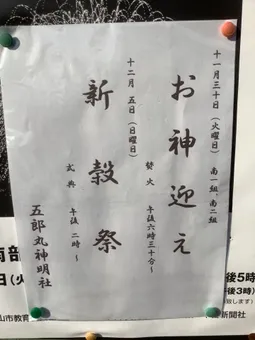 十一月三十日(火曜日) 南一組、南二組
お神迎え
替火 午後六時三十分〜
十二月 五日(日曜日)
新穀祭
式典 午後 二時〜
五郎丸神明社
南部
日(火
山市教育
後5時
後3時)
致します)
新聞社